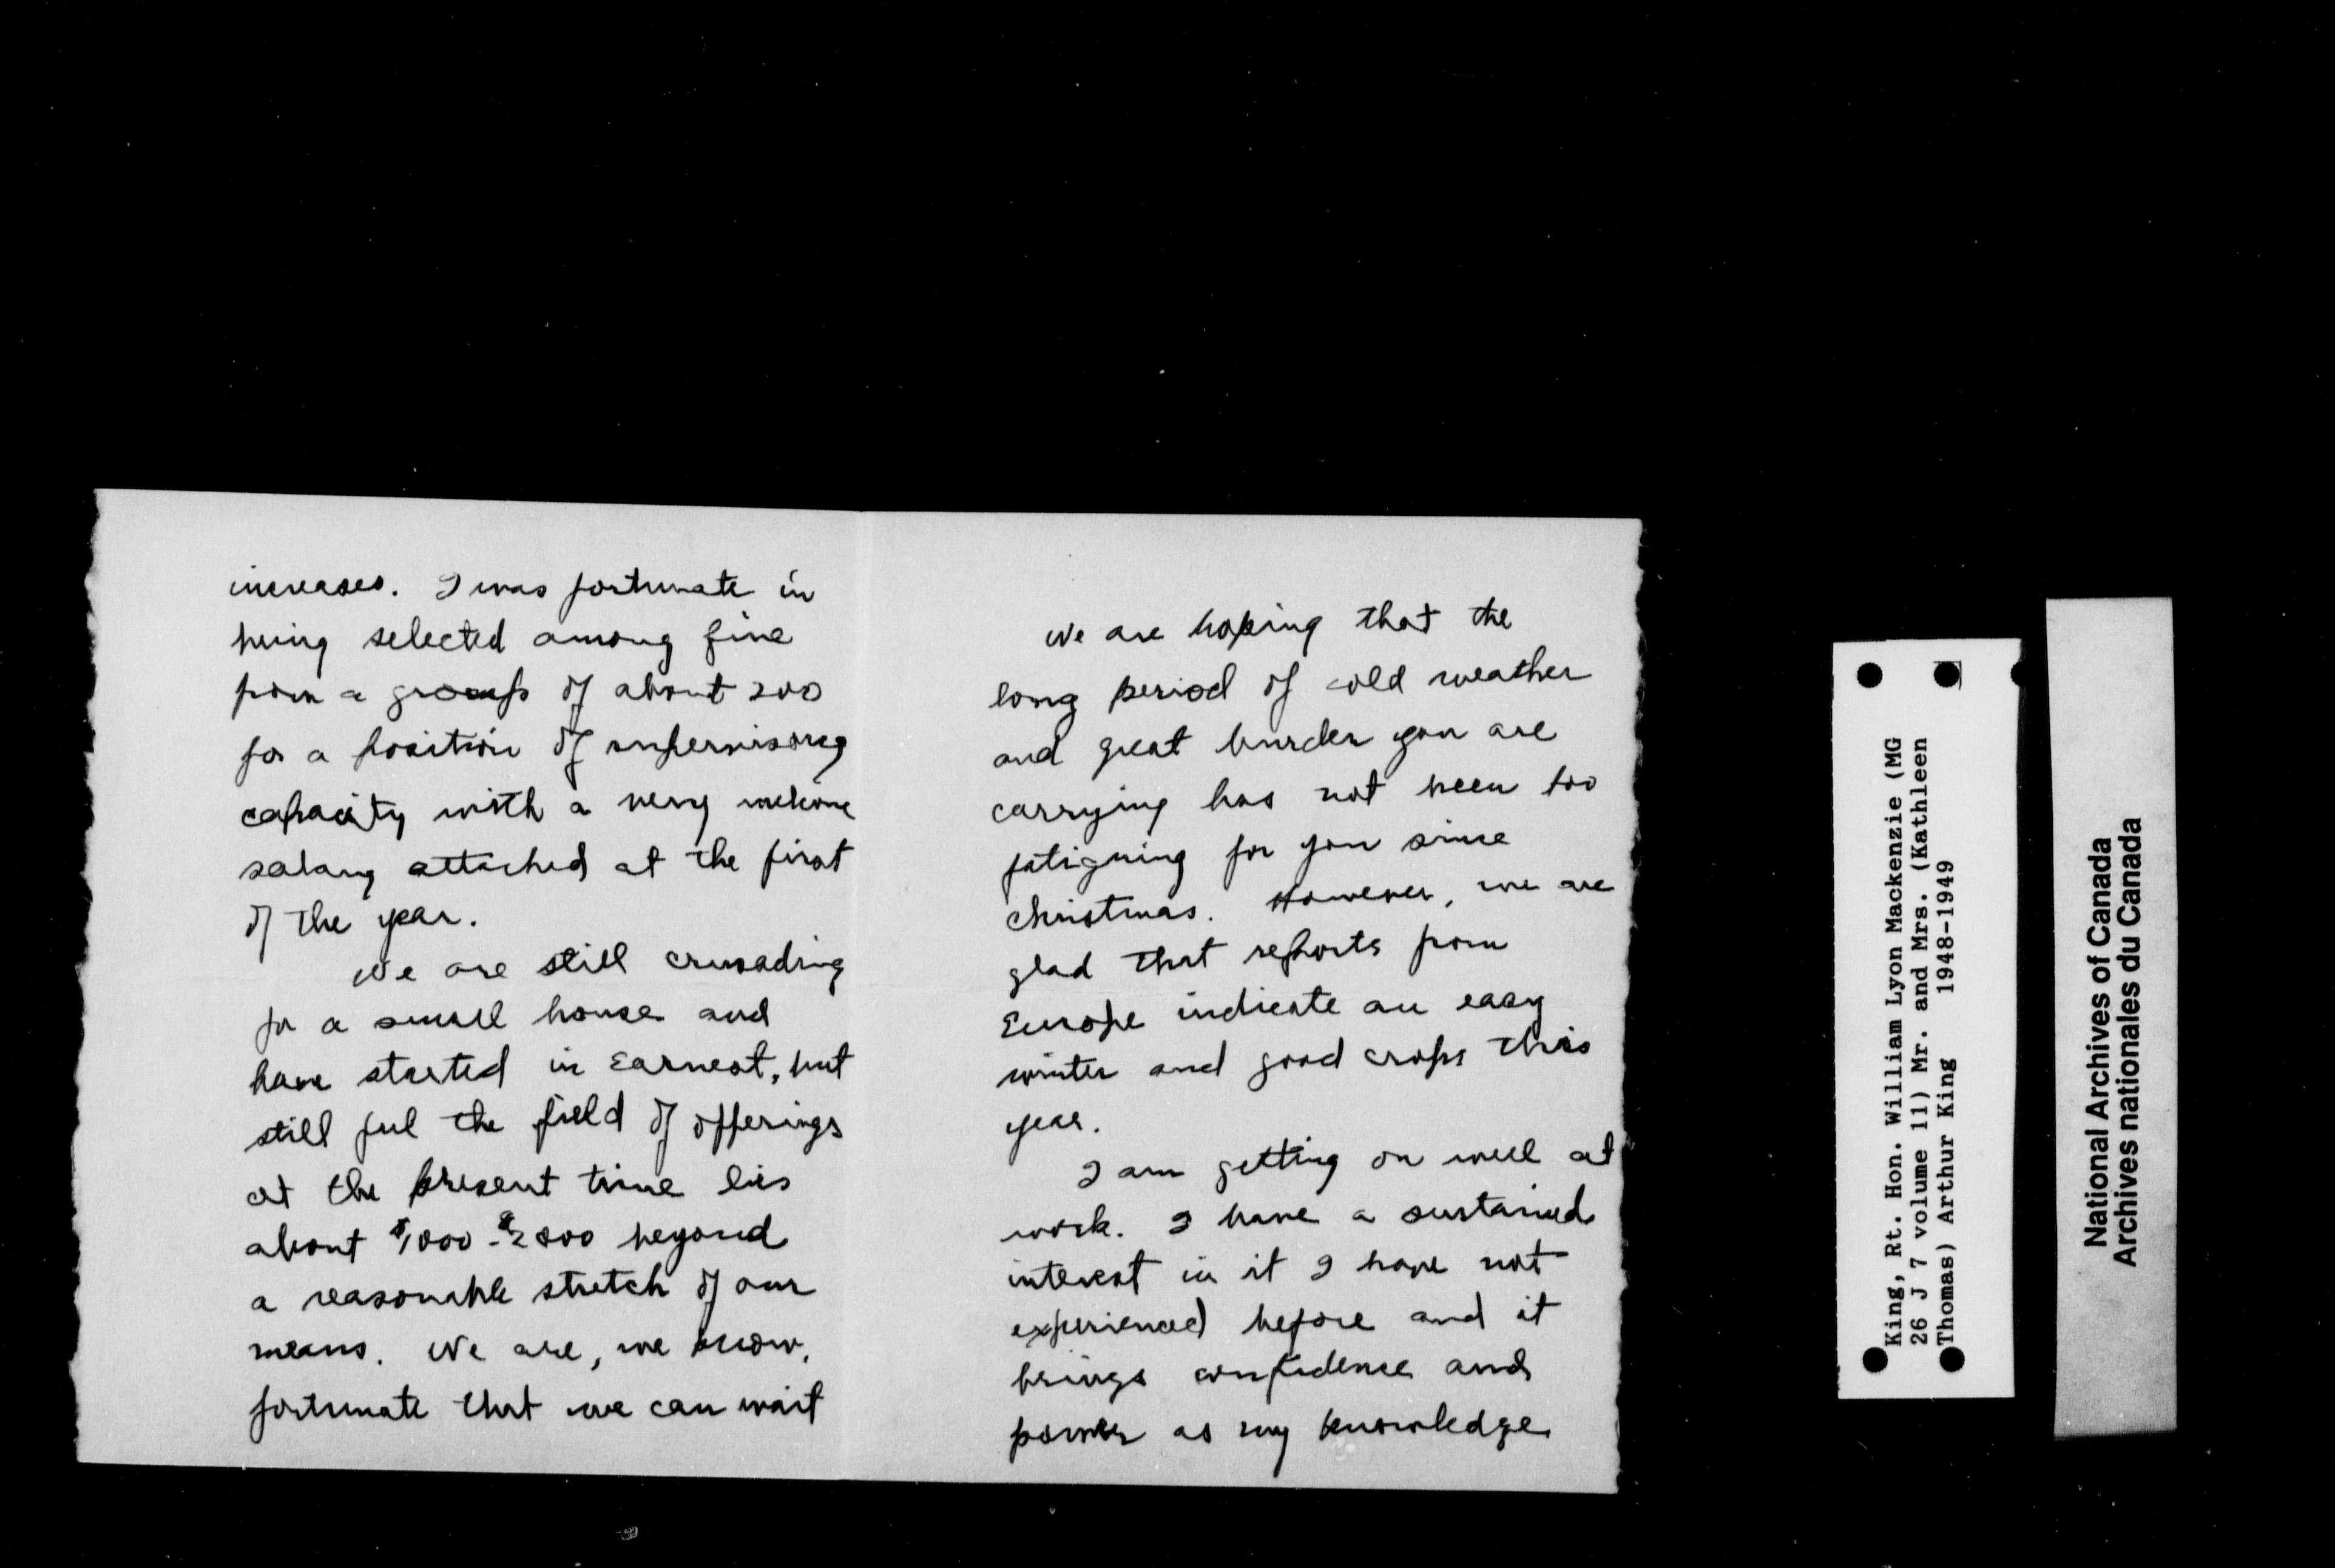 increases. I was fortunate in
being selected among five
from a group of about 200
for a position of supervisory
capacity with a very welcome
salary attached at the first
of the year.
We are still crusading
for a small house and
have started in earnest, but
still feel the field of offerings
at the present time lies
about $1000 - $2000 beyond
a reasonable stretch of our
means. We are, we know,
fortunate that we can wait
We are hoping that the
long period of cold weather
and great burden you are
carrying has not been too
fatiguing for you since
Christmas. However, we are
glad that reports from
Europe indicate an easy
winter and good crops this
year.
I am getting on well at
work. I have a sustained
interest in it I have not
experienced before and it
brings confidence and
power as my knowledge
King, Rt. Hon. William Lyon Mackenzie (MG
26 J 7 volume 11) Mr. and Mrs. (Kathleen
Thomas) Arthur King 1948-1949
National Archives of Canada
Archives nationales du Canada